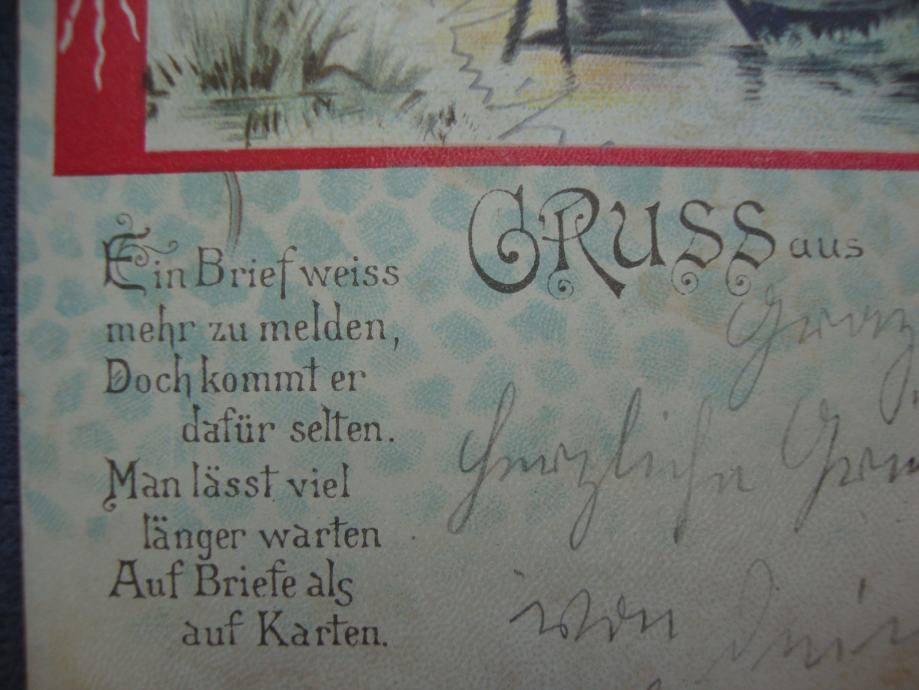 Ein Brief weiss
mehr zu melden,
Doch kommt er
dafür selten.
Man lässt viel
länger warten
Auf Briefe als
auf Karten.
GRUSS aus
Herzliche
von